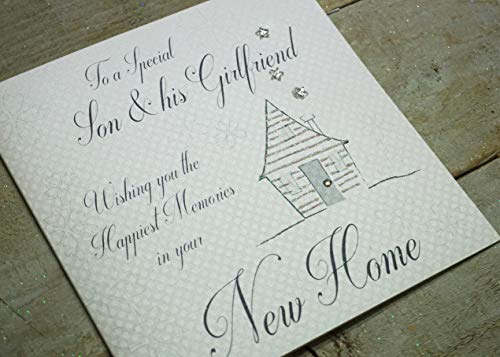 To a Special
Son & his Girlfriend
Wishing you the
Happiest Memories
in your
New Home